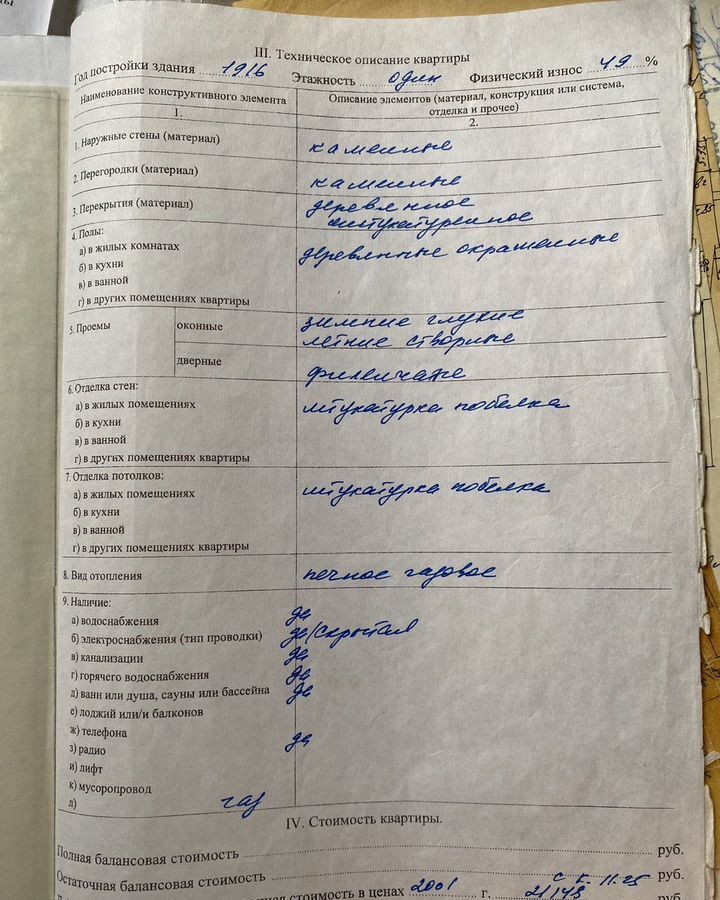 III. Техническое описание квартиры
Год постройки здания 1916 Этажность один Физический износ 49 %
Наименование конструктивного элемента Описание элементов (материал, конструкция или система, отделка и прочее)
1. 2.
1. Наружные стены (материал) каменные
2. Перегородки (материал) каменные
3. Перекрытия (материал) деревянное
штукатуренное
4. Полы:
а) в жилых комнатах деревянные окрашенные
б) в кухни
в) в ванной
г) в других помещениях квартиры
5. Проемы оконные зимние глухие
летние створные
дверные филенчатые
6. Отделка стен:
а) в жилых помещениях штукатурка побелка
б) в кухни
в) в ванной
г) в других помещениях квартиры
7. Отделка потолков:
а) в жилых помещениях штукатурка побелка
б) в кухни
в) в ванной
г) в других помещениях квартиры
8. Вид отопления печное газовое
9. Наличие:
а) водоснабжения да
б) электроснабжения (тип проводки) да/скрытая
в) канализации да
г) горячего водоснабжения да
д) ванн или душа, сауны или бассейна да
е) лоджий или/и балконов
ж) телефона
з) радио да
и) лифт
к) мусоропровод
л) газ
IV. Стоимость квартиры.
Полная балансовая стоимость руб.
Остаточная балансовая стоимость руб.
стоимость в ценах 2001 г. руб.